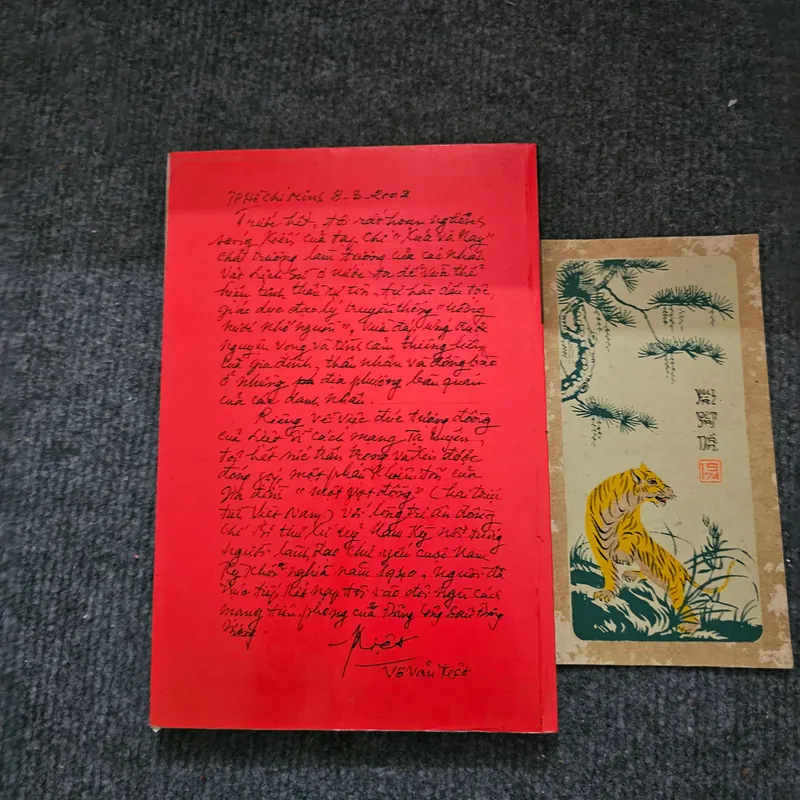 TP Hồ Chí Minh 8-3-2002
Trước hết, tôi rất hoan nghênh
sáng kiến của tạp chí "Xưa và Nay"
chủ trương làm tượng của các nhân
vật lịch sử ở nước ta để vừa thể
hiện tinh thần tự tôn, tự hào dân tộc,
giáo dục đạo lý truyền thống "uống
nước nhớ nguồn", vừa đáp ứng được
nguyện vọng và tình cảm thiêng liêng
của gia đình, thân nhân và đồng bào
ở những địa phương bản quán
của các danh nhân.
Riêng về việc đúc tượng đồng
của liệt sĩ cách mạng Tạ Uyên,
tôi hết sức trân trọng và xin được
đóng góp một phần khiêm tốn của
gia đình "một vạt đồng" (hai triệu
Việt Nam) với lòng tri ân đồng
chí Bí thư Xứ uỷ Nam Kỳ nổi tiếng
người lãnh đạo chủ yếu cuộc Nam
Kỳ Khởi nghĩa năm 1940, người đã
trực tiếp kết nạp tôi vào đội ngũ cách
mạng tiên phong của Đảng Cộng Sản Đông
Dương.
Kiệt
Võ Văn Kiệt
1974